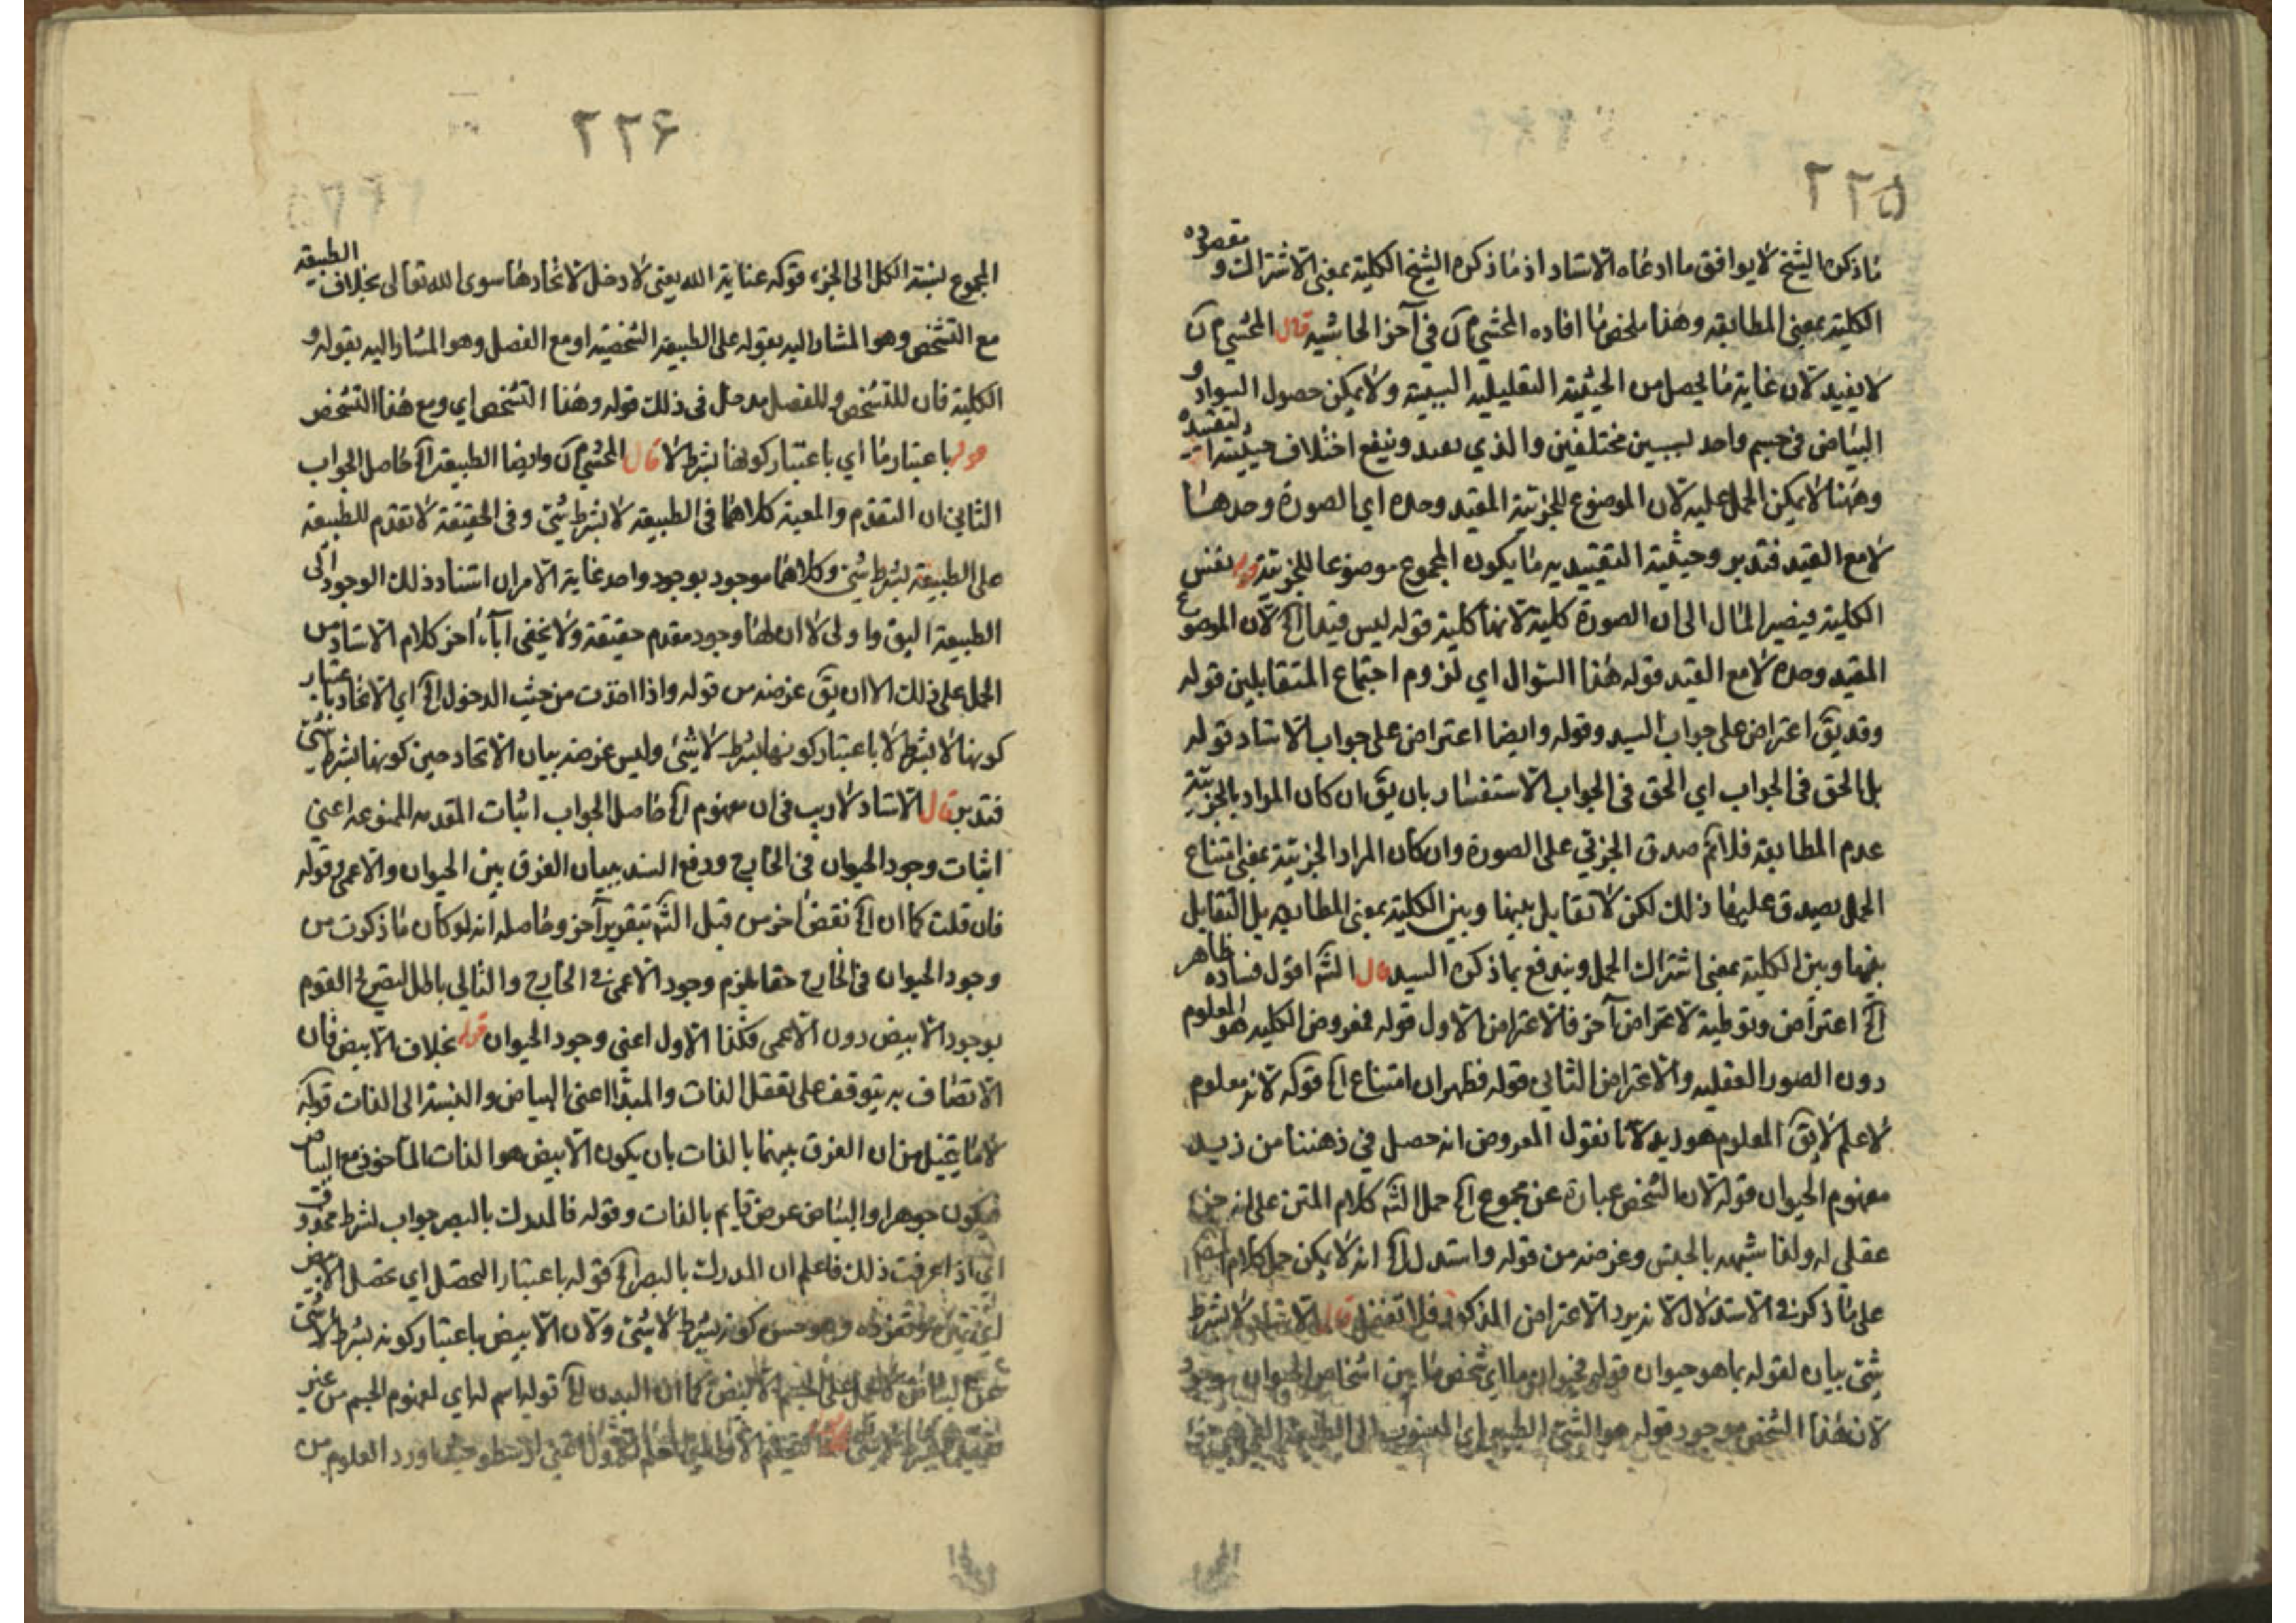 ٢٢٥
ما ذكره الشيخ لا يوافق ما ادعاه الاستاد اذ ما ذكره الشيخ الكلية بمعنى الاشتراك و مقصوده
الكلية بمعنى المطابقه وهذا ملخص ما افاده المحشي م ن في آخر الحاشيه قال المحشي م ن
لا يفيد لان غاية ما يحصل من الحيثية التعليليه السببية ولا يمكن حصول السواد و
البياض في جسم واحد لسببين مختلفين والذي بعيد وينفع اختلاف حيثية التقييدية
وههنا لا يمكن الحمل عليه لان الموضوع للجزئية المقيد وحده اي الصورة وحدها
لا مع القيد فتدبر وحيثية التقييديه ما يكون المجموع موضوعا للجزئية قوله نفس
الكلية فيصير المال الى ان الصورة كلية لانها كلية قوله ليس قيدا الخ لان الموضوع
المقيد وحده لا مع القيد قوله هذا السوال اي لزوم اجتماع المتقابلين قوله
وقد يق اعتراض على جواب السيد وقوله وايضا اعتراض على جواب الاستاد قوله
بل الحق في الجواب اي الحق في الجواب الاستفسار بان يق ان كان المراد بالجزئية
عدم المطابقه فلانم صدق الجزئي على الصورة وان كان المراد الجزئية بمعنى امتناع
الحمل يصدق عليها ذلك لكن لا تقابل بينها وبين الكلية بمعنى المطابقه بل التقابل
بينها وبين الكلية بمعنى اشتراك الحمل ويندفع بما ذكره السيد قال الشم اقول فساده ظاهر
الخ اعتراض وتوطية لاعتراض آخر فالاعتراض الاول قوله فمعروض الكليه هو المعلوم
دون الصور العقليه والاعتراض الثاني قوله فظهر ان امتناع الخ قوله لانه معلوم
لا علم لا يق المعلوم هو زيد لانا نقول المعروض انه حصل في ذهننا من زيد
مفهوم الحيوان قوله لان الشخص عبارة عن مجموع الخ حمل الشم كلام المتن على انه جزء
عقلي له ولذا شبهه بالجنس وغرضه من قوله واستدل الخ انه لا يمكن حمل كلام المص
على ما ذكره في الاستدلال لانه يرد الاعتراض المذكور فلا تغفل قال الاستاد لا بشرط
شئ بيان لقوله بما هو حيوان قوله فحيوان ما اي شخص ما من اشخاص الحيوان موجود
لان هذا الشخص موجود قوله هو الشئ الطبيعي اي المنسوب الى الطبيعة
٢٢۶
المجموع لنسبة الكل الى الجزء قوله عناية الله يعني لا دخل لاتحادها سوى الله تعالى بخلاف الطبيعة
مع التشخص وهو المشار اليه بقوله على الطبيعة الشخصية او مع الفصل وهو المشار اليه بقوله و
الكلية فان للتشخص وللفصل مدخل في ذلك قوله وهذا التشخص اي ومع هذا التشخص
قوله باعتبار ما اي باعتبار كونها بشرط لا قال المحشي م ن وايضا الطبيعة الخ حاصل الجواب
الثاني ان التقدم والمعية كلاهما في الطبيعة لا بشرط شئ وفي الحقيقة لا تقدم للطبيعة
على الطبيعة بشرط شئ وكلاهما موجود بوجود واحد غاية الامر ان استناد ذلك الوجود الى
الطبيعة اليق واولى لا ان لها وجود مقدم حقيقة ولا يخفى اباء اخر كلام الاستاد من
الحمل على ذلك الا ان يق غرضه من قوله واذا اخذت من حيث الدخول الخ اي الاتحاد باعتبار
كونها لا بشرط لا باعتبار كونها بشرط لا شئ وليس غرضه بيان الاتحاد حين كونها بشرط شئ
فتدبر قال الاستاد لا ريب في ان مفهوم الخ حاصل الجواب اثبات المقدمه الممنوعه اعني
اثبات وجود الحيوان في الخارج ودفع السند ببيان الفرق بين الحيوان والاعمى وقوله
فان قلت كما ان الخ نقض اخر من قبل الشم بتقرير آخر وحاصله انه لو كان ما ذكرت من
وجود الحيوان في الخارج حقا يلزم وجود الاعمى في الخارج والتالي باطل لتصريح القوم
بوجود الابيض دون الاعمى فكذا الاول اعني وجود الحيوان قوله بخلاف الابيض فان
الاتصاف به يتوقف على تعقل الذات والمبدا اعني البياض والنسبة الى الذات قوله
لا ما يتخيل من ان الفرق بينهما بالذات بان يكون الابيض هو الذات الماخوذ مع البياض
فيكون جوهرا والبياض عرض قايم بالذات وقوله فالمدرك بالبصر جواب لشرط محذوف
اي اذا عرفت ذلك فاعلم ان المدرك بالبصر الخ قوله باعتبار التحصل اي تحصل الابيض
وهو حين كونه بشرط لا شئ ولان الابيض باعتبار كونه بشرط لا شئ
كما ان البدن الخ قوله اسم له اي لمفهوم الجسم من غير
ورد العلوم من